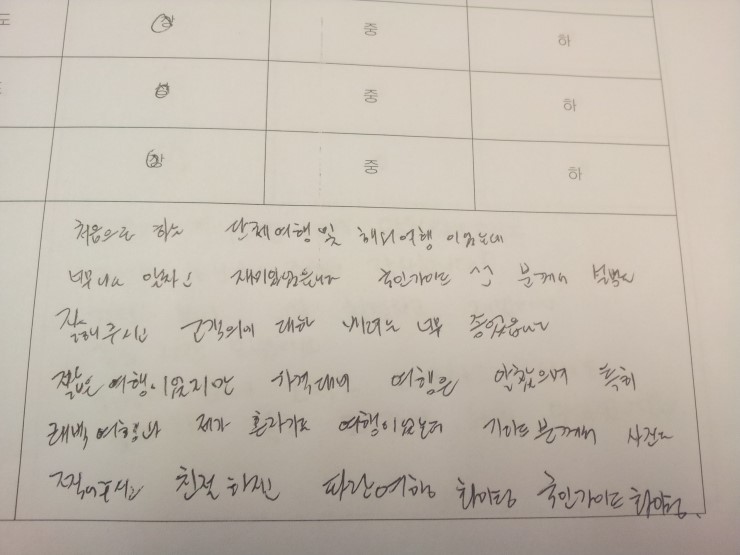 도 상 중 하
상 중 하
상 중 하
처음으로 하는 단체여행 및 해외여행 이었는데
너무나도 알차고 재미있었습니다 국민가이드 분께서
잘해주시고 고객의 대한 배려는 너무 좋았습니다
짧은 여행이었지만 가격대비 여행은 알찼으며 특히
태백 여행과 제가 혼자가는 여행이었는데 가이드분께서 사진도
찍어주시고 친절하신 파란여행 화이팅 국민가이드 화이팅